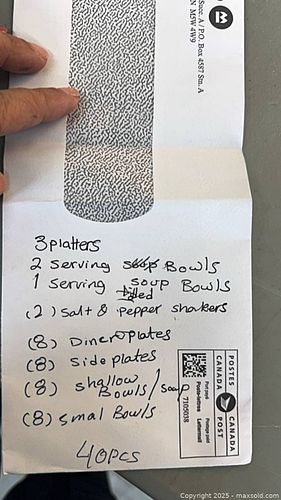 Succ. A / P.O. Box 4587 Stn. A
N M5W 4W9
3 platters
2 Serving Bowls
1 Serving soup Bowls
(2) Salt & Pepper shakers
(8) Diner plates
(8) Side plates
(8) shallow
Bowls / soup
(8) Smal Bowls
40pcs
POSTES CANADA
CANADA POST
Port payé
Postage paid
Poste-lettres
Lettermail
7105038
Copyright © 2025 - maxsold.com